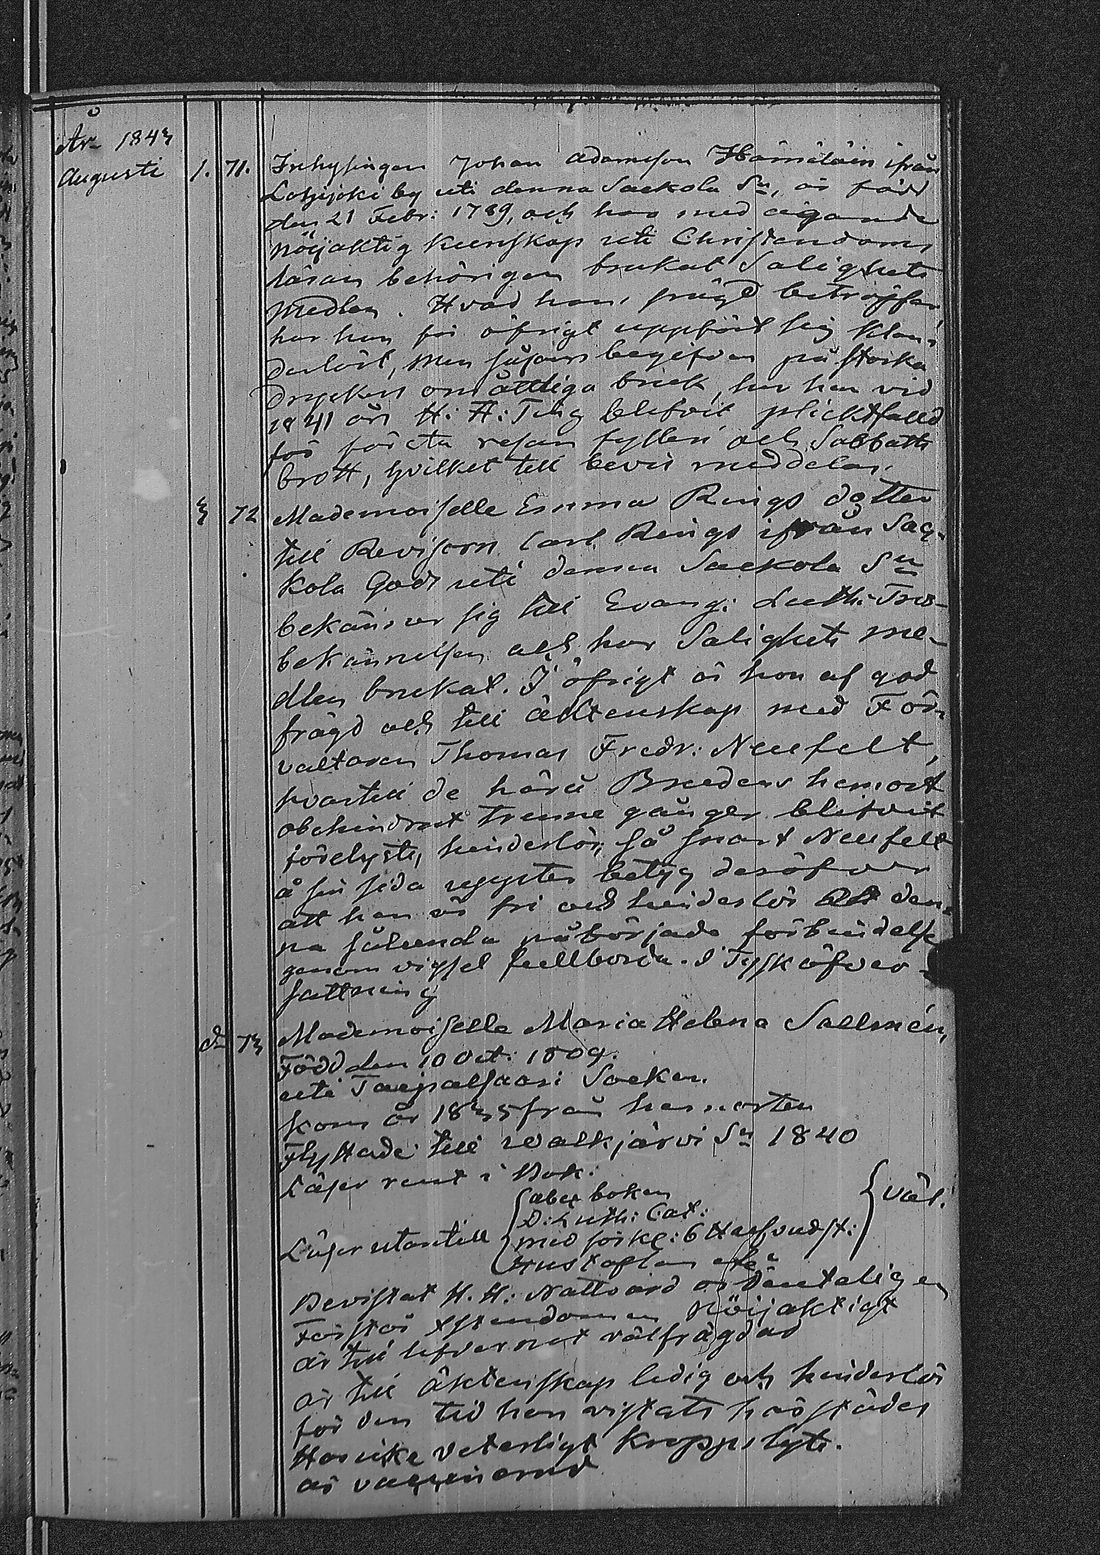 År 1843
Augusti 1. 71. Inhysingen Johan Adamsson Hämäläin ifrån
Lohijoki by uti denna Sackola Sn, är född
den 21 Febr: 1789, och har med ägande
nöijaktig kunskap uti Christendoms
läran behörigen brukat Salighets
medlen. Hvad hans frägd beträffar
har han för öfrigt uppfört sig klan-
derlöst, men såsom begifven på starka
dryckers omåttliga bruk, har han vid
1841 års H: H: Ting blifvit plicktfälld
för första resan fylleri och Sabbaths
brott, hvilket till bevis meddelas.
3 72 Mademoiselle Emma Rings dotter
till Revisorn Carl Rings ifrån Sac-
kola Gods uti denna Sackola Sn
bekänner sig till Evang: Luth: Tros-
bekännelsen och har Salighets me-
dlen brukat. I öfrigt är hon af god
frägd och till äktenskap med För-
valtaren Thomas Fredr: Neufelt,
hvartill de härå Brudens hemort
obehindrat trenne gånger blifvit
förelyste, hinderlös, så snart Neufelt
å sin sida uppter betyg deröfver
att han är fri och hinderlös att den-
na sålunda påbörjade förbindelse
genom vigsel fullborda. I Tysk öfver-
sättning
d 73 Mademoiselle Maria Helena Sallmén,
Född den 10 Oct: 1809.
uti Taipalsaari Socken.
kom år 1835 från hemorten
Flyttade till Walkjärvi Sn 1840
Läser rent i Bok.
abcboken
D: Luth: Cat:
Läser utantill med förkl: 6 Hufvudst: väl.
Hustaflan
Bevistat H. H: Nattvard ordenteligen
Förstår Xstendomen nöijaktigt
är till lefvernet välfrägdad
är till äktenskap ledig och hinderlös
för den tid hon vistats härstädes
Har icke veterligt kroppslyte.
är vaccinerad